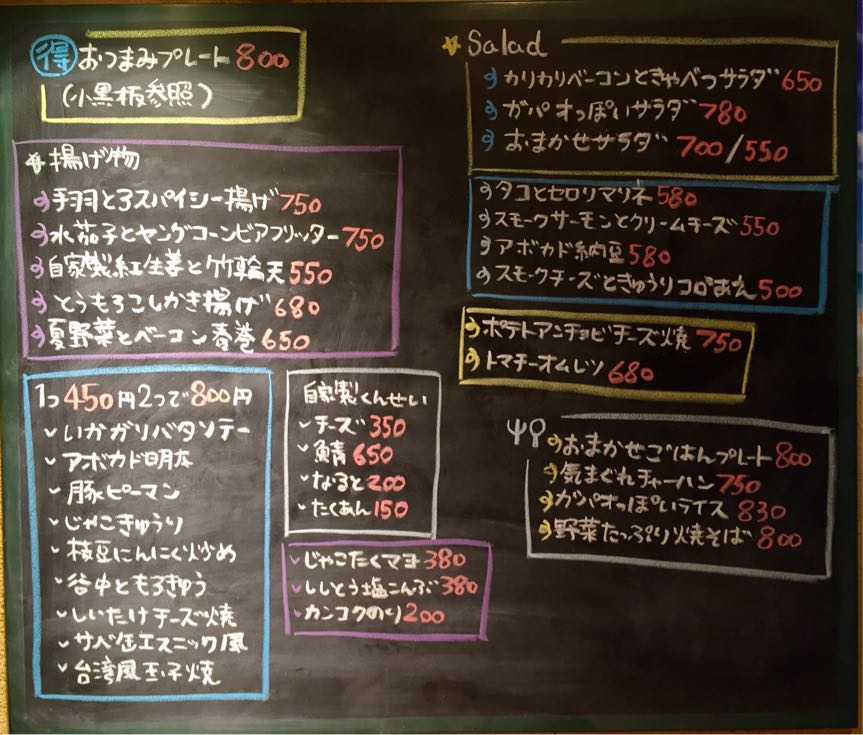 得 おつまみプレート 800
(小黒板参照)
揚げ物
手羽とろスパイシー揚げ 750
水茄子とヤングコーンビアフリッター 750
自家製紅生姜と竹輪天 550
とうもろこしかき揚げ 680
夏野菜とベーコン春巻 650
1つ450円2つで800円
いかガリバタソテー
アボカド明太
豚ピーマン
じゃこきゅうり
枝豆にんにく炒め
谷中ともろきゅう
しいたけチーズ焼
サバ缶エスニック風
台湾風玉子焼
自家製くんせい
チーズ 350
鯖 650
なると 200
たくあん 150
じゃこたくマヨ 380
ししとう塩こんぶ 380
カンコクのり 200
Salad
カリカリベーコンときゃべつサラダ 650
ガパオっぽいサラダ 780
おまかせサラダ 700/550
タコとセロリマリネ 580
スモークサーモンとクリームチーズ 550
アボカド納豆 580
スモークチーズときゅうりコロコロあえ 500
ポテトアンチョビチーズ焼 750
トマチーオムレツ 680
おまかせごはんプレート 800
気まぐれチャーハン 750
ガパオっぽいライス 830
野菜たっぷり焼そば 800